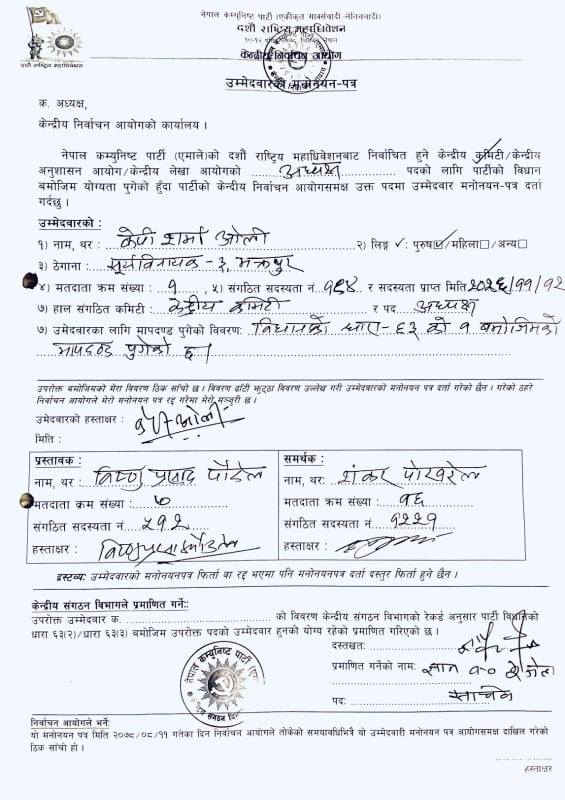 नेपाल कम्युनिष्ट पार्टी (एकीकृत मार्क्सवादी लेनिनवादी)
दशौं राष्ट्रिय महाधिवेशन
दशौं राष्ट्रिय महाधिवेशन
केन्द्रीय निर्वाचन आयोग
उम्मेदवारको मनोनयन-पत्र
क. अध्यक्ष,
केन्द्रीय निर्वाचन आयोगको कार्यालय ।
नेपाल कम्युनिष्ट पार्टी (एमाले)को दशौं राष्ट्रिय महाधिवेशनबाट निर्वाचित हुने केन्द्रीय कमिटी/केन्द्रीय
अनुशासन आयोग/केन्द्रीय लेखा आयोगको अध्यक्ष पदको लागि पार्टीको विधान
बमोजिम योग्यता पुगेको हुँदा पार्टीको केन्द्रीय निर्वाचन आयोगसमक्ष उक्त पदमा उम्मेदवार मनोनयन-पत्र दर्ता
गर्दछु ।
उम्मेदवारको :
१) नाम, थर : केपी शर्मा ओली २) लिङ्ग ✓: पुरुष☑/महिला□/अन्य□
३) ठेगाना : सूर्यविनायक - २, भक्तपुर
४) मतदाता क्रम संख्या : १ , ५) संगठित सदस्यता नं. १८४ र सदस्यता प्राप्त मिति २०२६/११/१२
७) हाल संगठित कमिटी : केन्द्रीय कमिटी र पद अध्यक्ष
७) उमेदवारका लागि मापदण्ड पुगेको विवरण: विधानको धारा-६३ को १ बमोजिमको
मापदण्ड पुगेको छ ।
उपरोक्त बमोजिमको मेरा विवरण ठिक साँचो छ । विवरण ढाँटी झुठ्ठा विवरण उल्लेख गरी उम्मेदवारको मनोनयन पत्र दर्ता गरेको छैन । गरेको ठहरे
निर्वाचन आयोगले मेरो मनोनयन पत्र रद्द गरेमा मेरो मञ्जुरी छ ।
उमेदवारको हस्ताक्षर : केपी ओली
मिति :
प्रस्तावक :
नाम, थर: विष्णु प्रसाद पौडेल
मतदाता क्रम संख्या : ७
संगठित सदस्यता नं. ५१२
हस्ताक्षर : विष्णुप्रसाद पौडेल
समर्थक :
नाम, थर: शंकर पोखरेल
मतदाता क्रम संख्या : १६
संगठित सदस्यता नं. १२२१
हस्ताक्षर :
द्रस्टव्यः उम्मेदवारको मनोनयनपत्र फिर्ता वा रद्द भएमा पनि मनोनयनपत्र दर्ता दस्तुर फिर्ता हुने छैन ।
केन्द्रीय संगठन विभागले प्रमाणित गर्नेः:
उपरोक्त उम्मेदवार क. को विवरण केन्द्रीय संगठन विभागको रेकर्ड अनुसार पार्टी विधानको
धारा ६३(२)/धारा ६३(३) बमोजिम उपरोक्त पदको उम्मेदवार हुनको योग्य रहेको प्रमाणित गरिएको छ ।
दस्तखत:
प्रमाणित गर्नेको नाम:
पद:
नेपाल कम्युनिष्ट पार्टी
निर्वाचन आयोगले भर्ने:
यो मनोनयन पत्र मिति २०७८/०८/११ गतेका दिन निर्वाचन आयोगले तोकेको समयावधिभित्रै यो उम्मेदवारी मनोनयन पत्र आयोगसमक्ष दाखिल गरेको
ठिक साँचो हो ।
हस्ताक्षर